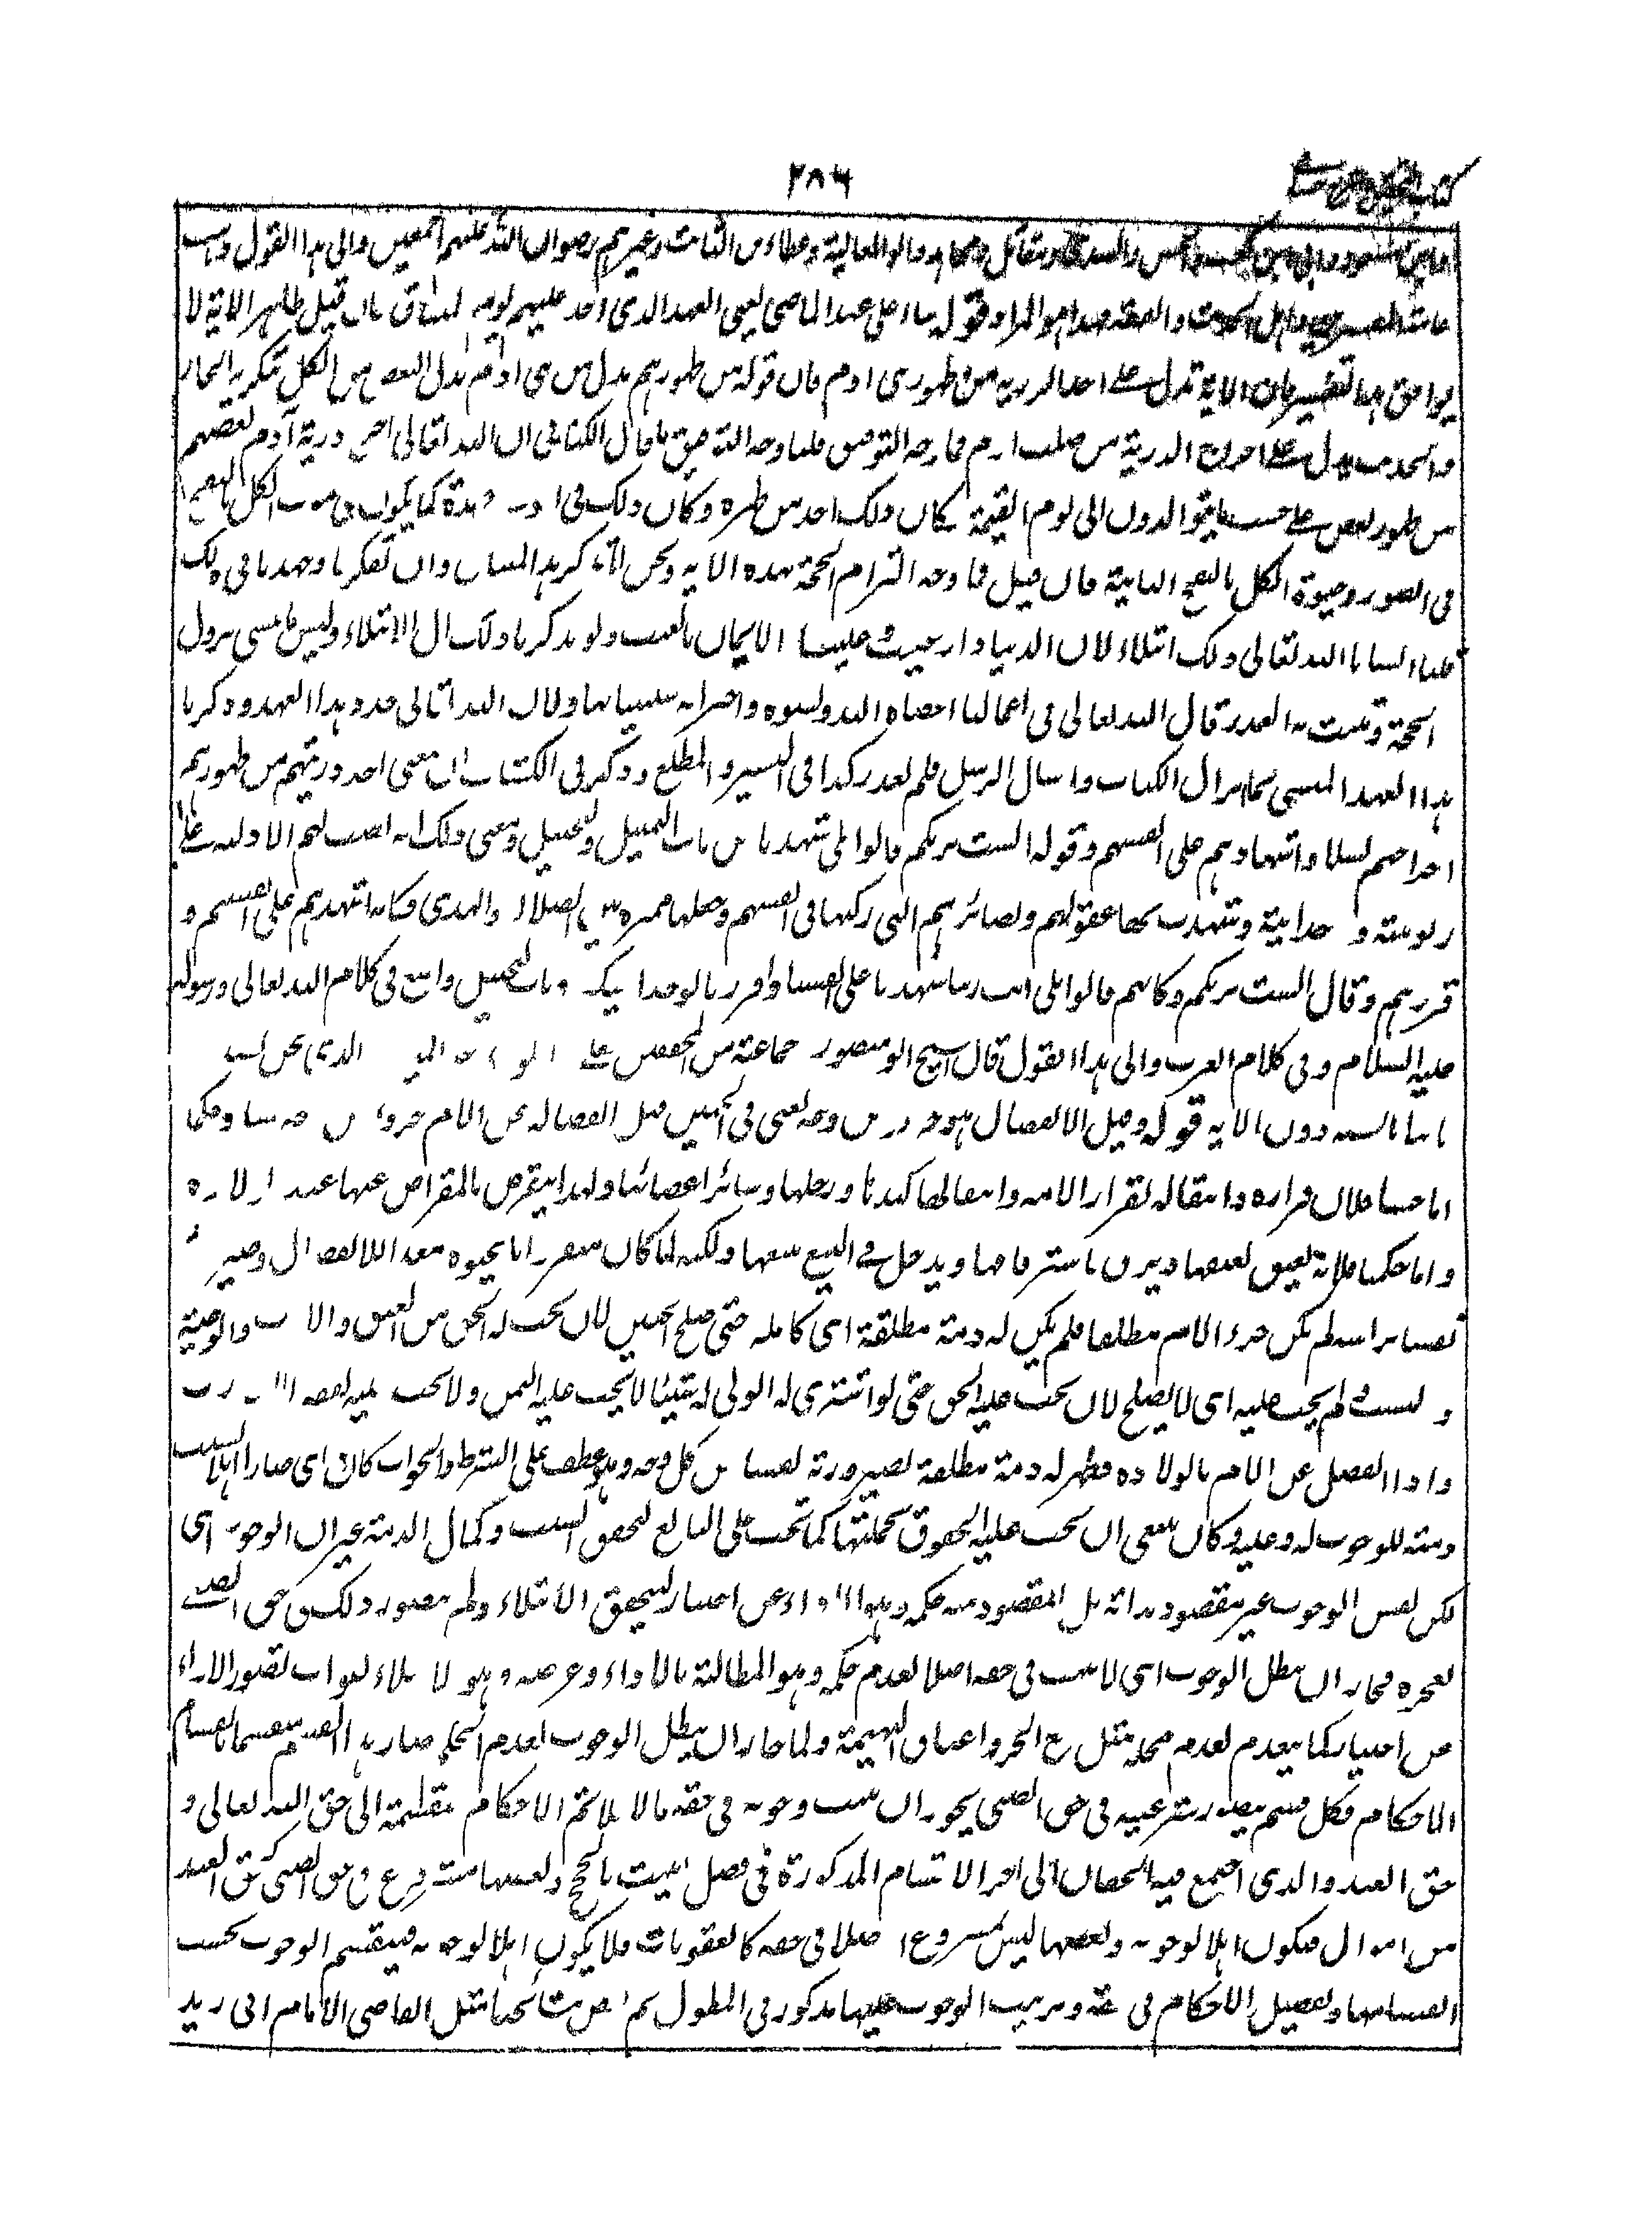 ٢٨٦
وابن مسعود وابي بن كعب والسدي ومقاتل ومجاهد وابو العالية وعطاء بن السائب وغيرهم رضوان الله عليهم اجمعين والى هذا القول ذهب
عامة المفسرين واهل الحديث هو المراد قوله بناء على عهد الماضي يعني العهد الذي اخذ عليهم يوم الميثاق فان قيل ظاهر الآية لا
يوافق هذا التفسير فان الآية تدل على اخذ الذرية من ظهور بني ادم فان قوله من ظهورهم بدل من بني ادم بدل البعض من الكل بتكرير الجار
والحديث يدل على اخراج الذرية من صلب ادم فما وجه التوفيق قلنا وجه التوفيق ما قال الكتاني ان الله تعالى اخرج ذرية آدم بعضهم
من ظهور بعض على حسب ما يتوالدون الى يوم القيمة فكان ذلك اخذ من ظهره وكان ذلك في مدة كما يكون في موت الكل بالنفخ
في الصور وحيوة الكل بالنفخ الثانية فان قيل فما وجه الزام الحجة بهذه الآية ونحن لا نذكر هذا الميثاق وان تفكرنا وجهدنا في ذلك
قلنا انسانا الله تعالى ذلك ابتلاء لان الدنيا دار غيب وعلينا الايمان بالغيب ولو تذكرنا ذلك زال الابتلاء وليس ما ينسى يزول
الحجة وتثبت به العذر قال الله تعالى في اعمالنا احصاه الله ونسوه واخبر انه سينبئنا بها ولان الله تعالى جدد هذا العهد وذكرنا
هذا العهد المنسي بانزال الكتاب وارسال الرسل فلم نعذر كذا في التيسير والمطلع وذكر في الكتاب ان معنى اخذ ذريتهم من ظهورهم
اخراجهم نسلا واشهادهم على انفسهم وقوله الست بربكم قالوا بلى شهدنا من باب التمثيل والتخييل ومعنى ذلك انه نصب لهم الادلة على
ربوبيته و وحدانيته وشهدت بها عقولهم وبصائرهم التي ركبها في انفسهم وجعلها مميزة بين الضلالة والهدى فكانه اشهدهم على انفسهم و
قررهم وقال الست بربكم وكانهم قالوا بلى انت ربنا شهدنا على انفسنا واقررنا بوحدانيتك وباب التخييل واسع في كلام الله تعالى ورسوله
عليه السلام وفي كلام العرب والى هذا القول قال الشيخ ابو منصور جماعة من المحققين
بالسنة دون الآية قوله وقبل الانفصال هو جزء من وجه يعني في الجنين قبل انفصاله عن الام جزء من وجه حسا وحكما
اما حسا فلان قراره وانتقاله بقرار الام وانتقالها كيدها ورجلها وسائر اعضائها ولهذا يقرض بالمقراض عنها عند الولادة
واما حكما فلانه يعتق بعتقها ويرق باسترقاقها ويدخل في البيع ببيعها ولكنه لما كان منفردا بالحيوة معدا للانفصال وصيرورته
نفسا براسه لم يكن جزء الام مطلقا فلم يكن له ذمة مطلقة اى كاملة حتى صلح الجنين لان يجب له الحق من العتق والارث والوصية
والنسب ولم يجب عليه اى لا يصلح لان يجب عليه الحق حتى لو اشترى له الولي شيئا لا يجب عليه الثمن ولا يجب عليه نفقة الاقارب
واذا انفصل عن الام بالولادة فظهر له ذمة مطلقة لصيرورته نفسا من كل وجه وهو عطف على الشرط والجواب كان اى صار اهلا بسبب
ذمته للوجوب له وعليه وكان ينبغي ان يجب عليه الحقوق بجملتها كما تجب على البالغ لتحقق السبب وكمال الذمة غير ان الوجوب اى
لكن نفس الوجوب غير مقصود بذاته بل المقصود منه حكمه وهو الاداء عن اختيار ليتحقق الابتلاء ولم يتصور ذلك في حق الصبي
لعجزه فجاز ان يبطل الوجوب اى لا يثبت في حقه اصلا لعدم حكمه وهو المطالبة بالاداء وغرضه وهو الابتلاء لفوات تصور الاداء
عن اختيار كما ينعدم لعدم محله مثل بيع الحر واعتاق البهيمة ولما جاز ان يبطل الوجوب لعدم الحكم صار هذا القسم منقسما بانقسام
الاحكام فكل قسم يتصور شرعيته في حق الصبي يجوز ان يثبت وجوبه في حقه وما لا فلا ثم الاحكام منقسمة الى حق الله تعالى و
حق العبد والذي اجتمع فيه الحقان الى اخر الاقسام المذكورة في فصل بينت بالحجج وبعضها مشروع في حق الصبي كحق العبد
من اموال فيكون اهلا لوجوبه وبعضها ليس بمشروع اصلا في حقه كالعقوبات فلا يكون اهلا لوجوبه فينقسم الوجوب بحسب
انقسامها وتفصيل الاحكام في حقه وترتيب الوجوب عليها مذكور في المطول ثم بعض مشائخنا مثل القاضي الامام ابي زيد